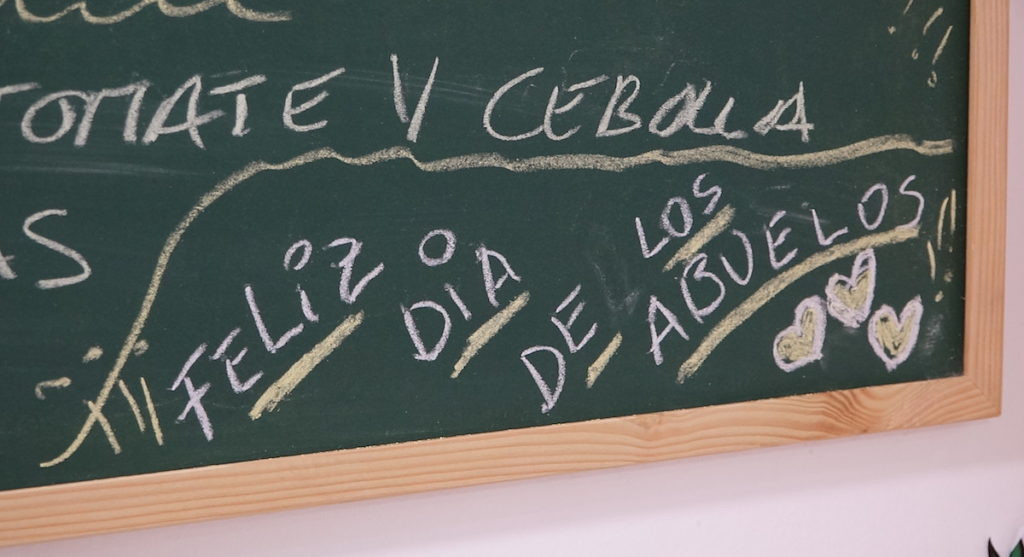 TOMATE Y CEBOLLA
AS
¡¡¡ FELIZ DIA DE LOS ABUELOS !!!